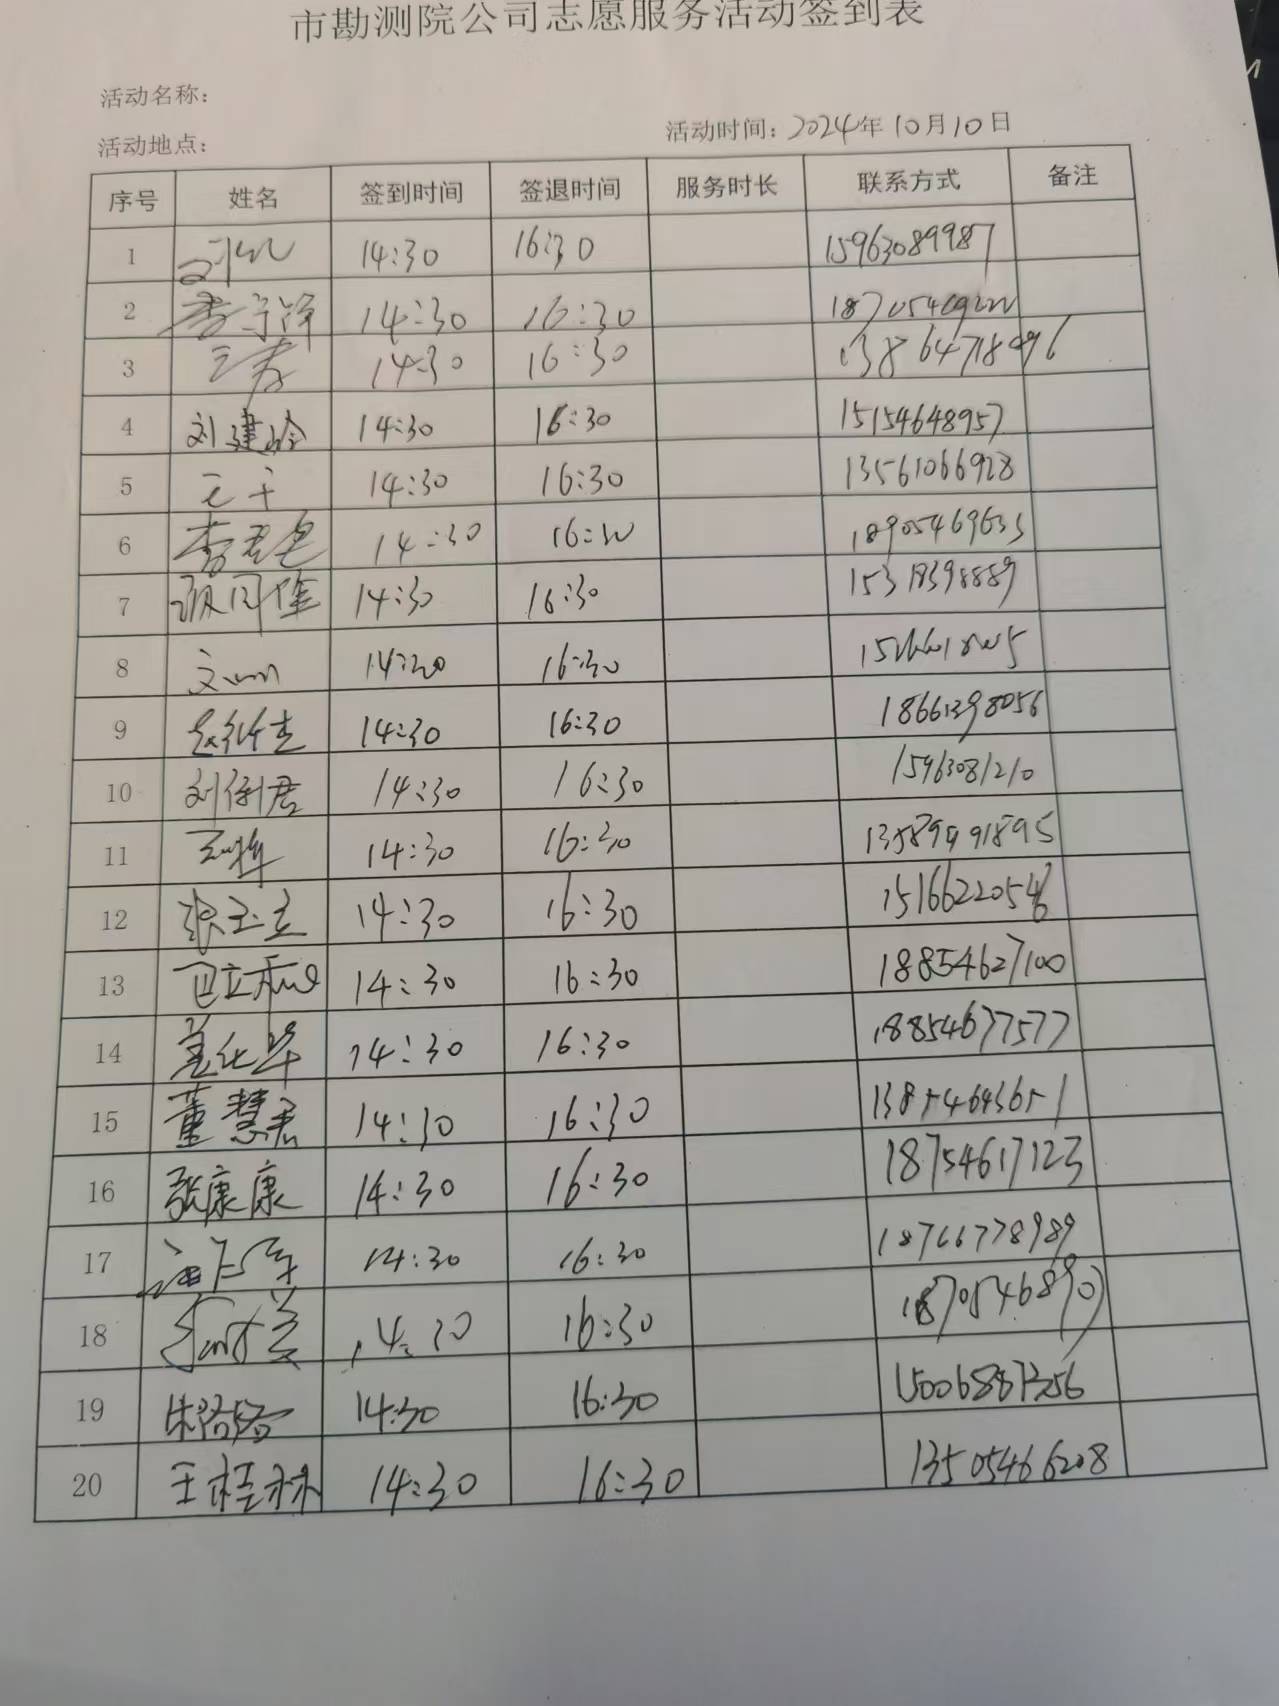 市勘测院公司志愿服务活动签到表
活动名称：
活动地点： 活动时间：2024年10月10日
序号 姓名 签到时间 签退时间 服务时长 联系方式 备注
1 14:30 16:30 15963089987
2 14:30 16:30
3 14:30 16:30 13864718496
4 刘建玲 14:30 16:30 15154648957
5 14:30 16:30 13561066928
6 14:30 16:30 18905469633
7 14:30 16:30 15318398889
8 16:30
9 14:30 16:30 18661398056
10 刘俐君 14:30 16:30 15963081210
11 14:30 16:30
12 张玉立 14:30 16:30
13 14:30 16:30 18854627100
14 14:30 16:30 18854677577
15 董慧君 14:30 16:30 13854643651
16 张康康 14:30 16:30 18754617123
17 14:30 16:30 18766778989
18 14:30 16:30 18705468909
19 朱路路 14:30 16:30
20 王桂林 14:30 16:30 13505466208